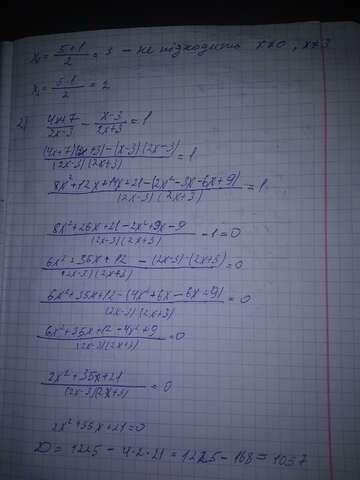 x₁ = (5+1)/2 = 3 – не підходить x≠0, x≠3
x₂ = (5-1)/2 = 2
2) (4x+7)/(2x-3) - (x-3)/(2x+3) = 1
((4x+7)(2x+3)-(x-3)(2x-3))/((2x-3)(2x+3)) = 1
(8x²+12x+14x+21-(2x²-3x-6x+9))/((2x-3)(2x+3)) = 1
(8x²+26x+21-2x²+9x-9)/((2x-3)(2x+3)) - 1 = 0
(6x²+35x+12-(2x-3)·(2x+3))/((2x-3)(2x+3)) = 0
(6x²+35x+12-(4x²+6x-6x-9))/((2x-3)(2x+3)) = 0
(6x²+35x+12-4x²+9)/((2x-3)(2x+3)) = 0
(2x²+35x+21)/((2x-3)(2x+3)) = 0
2x²+35x+21=0
D = 1225-4·2·21 = 1225-168 = 1057